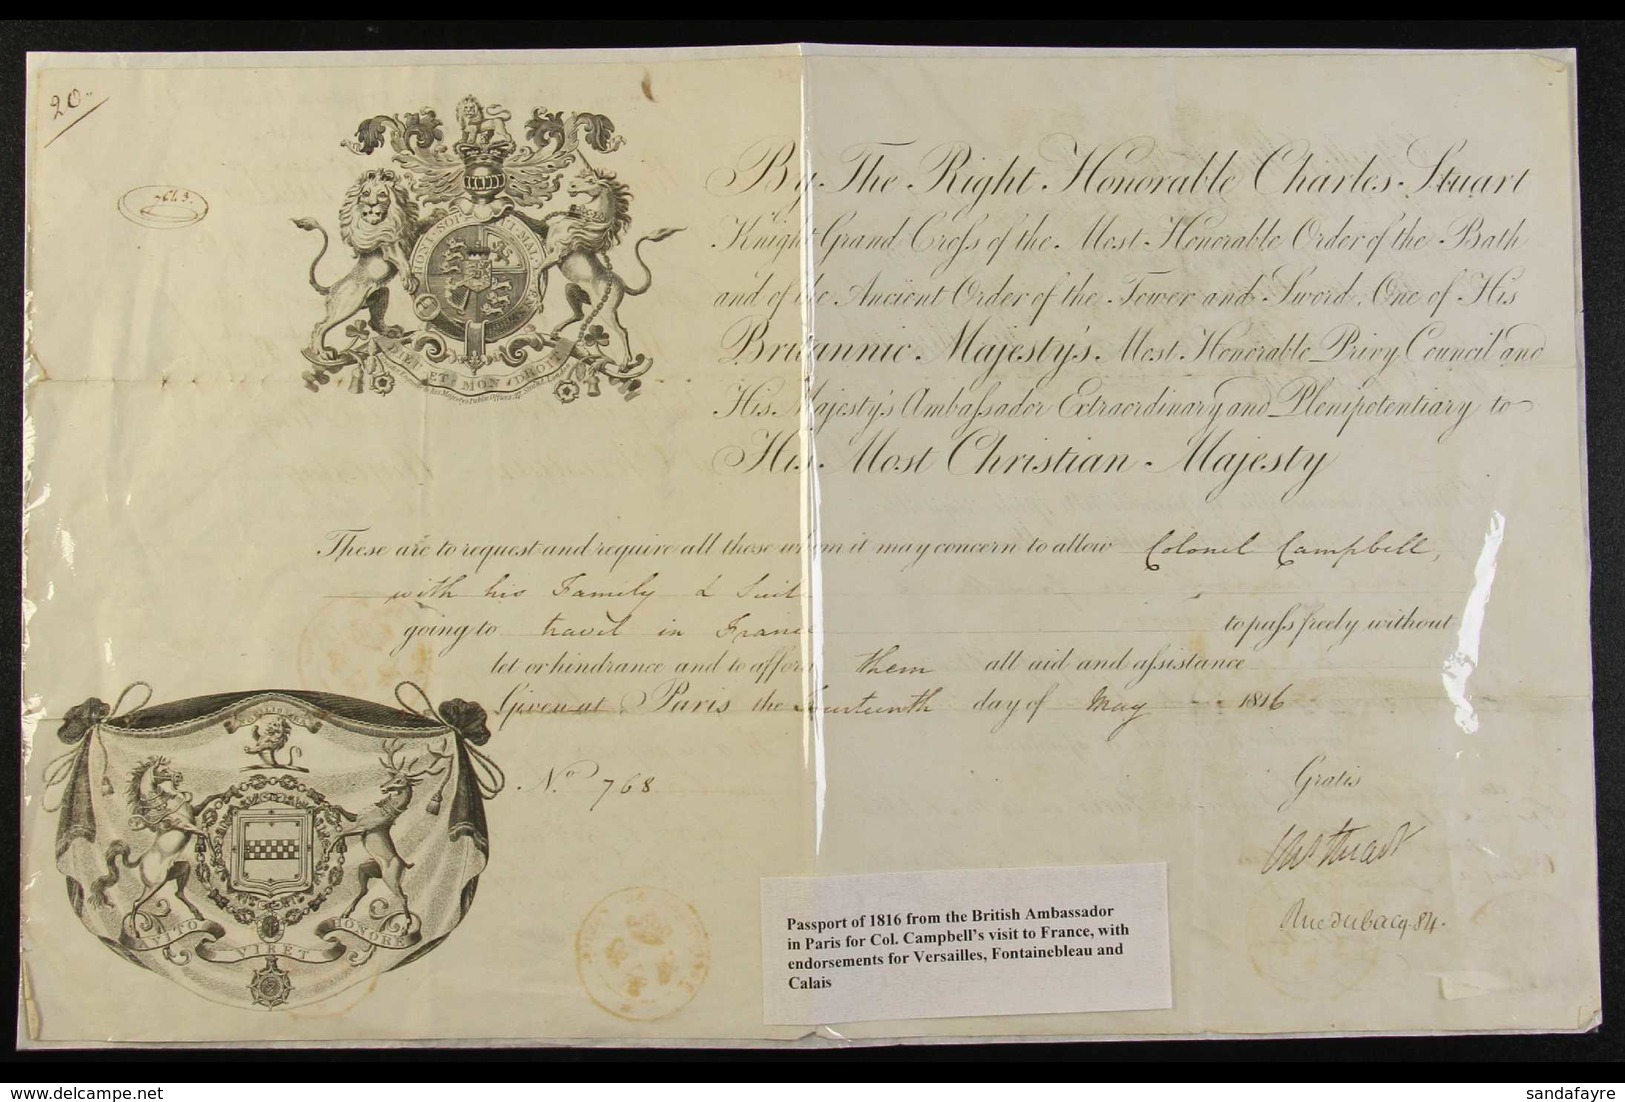 20
7643.
HONI SOIT QUI MAL Y PENSE
DIEU ET MON DROIT
By The Right Honorable Charles Stuart
Knight Grand Cross of the Most Honorable Order of the Bath
and of the Ancient Order of the Tower and Sword, One of His
Britannic Majesty's Most Honorable Privy Council and
His Majesty's Ambassador Extraordinary and Plenipotentiary to
His Most Christian Majesty
These are to request and require all those whom it may concern to allow Colonel Campbell,
with his Family & Suite
going to travel in France to pass freely without
let or hindrance and to afford them all aid and assistance
Given at Paris the fourteenth day of May 1816
No. 768
Gratis
Chas Stuart
Rue du bacq. 84.
NOBILIS IRA
AVITO VIRET HONORE
Passport of 1816 from the British Ambassador
in Paris for Col. Campbell's visit to France, with
endorsements for Versailles, Fontainebleau and
Calais
delcampe.net
sandafayre